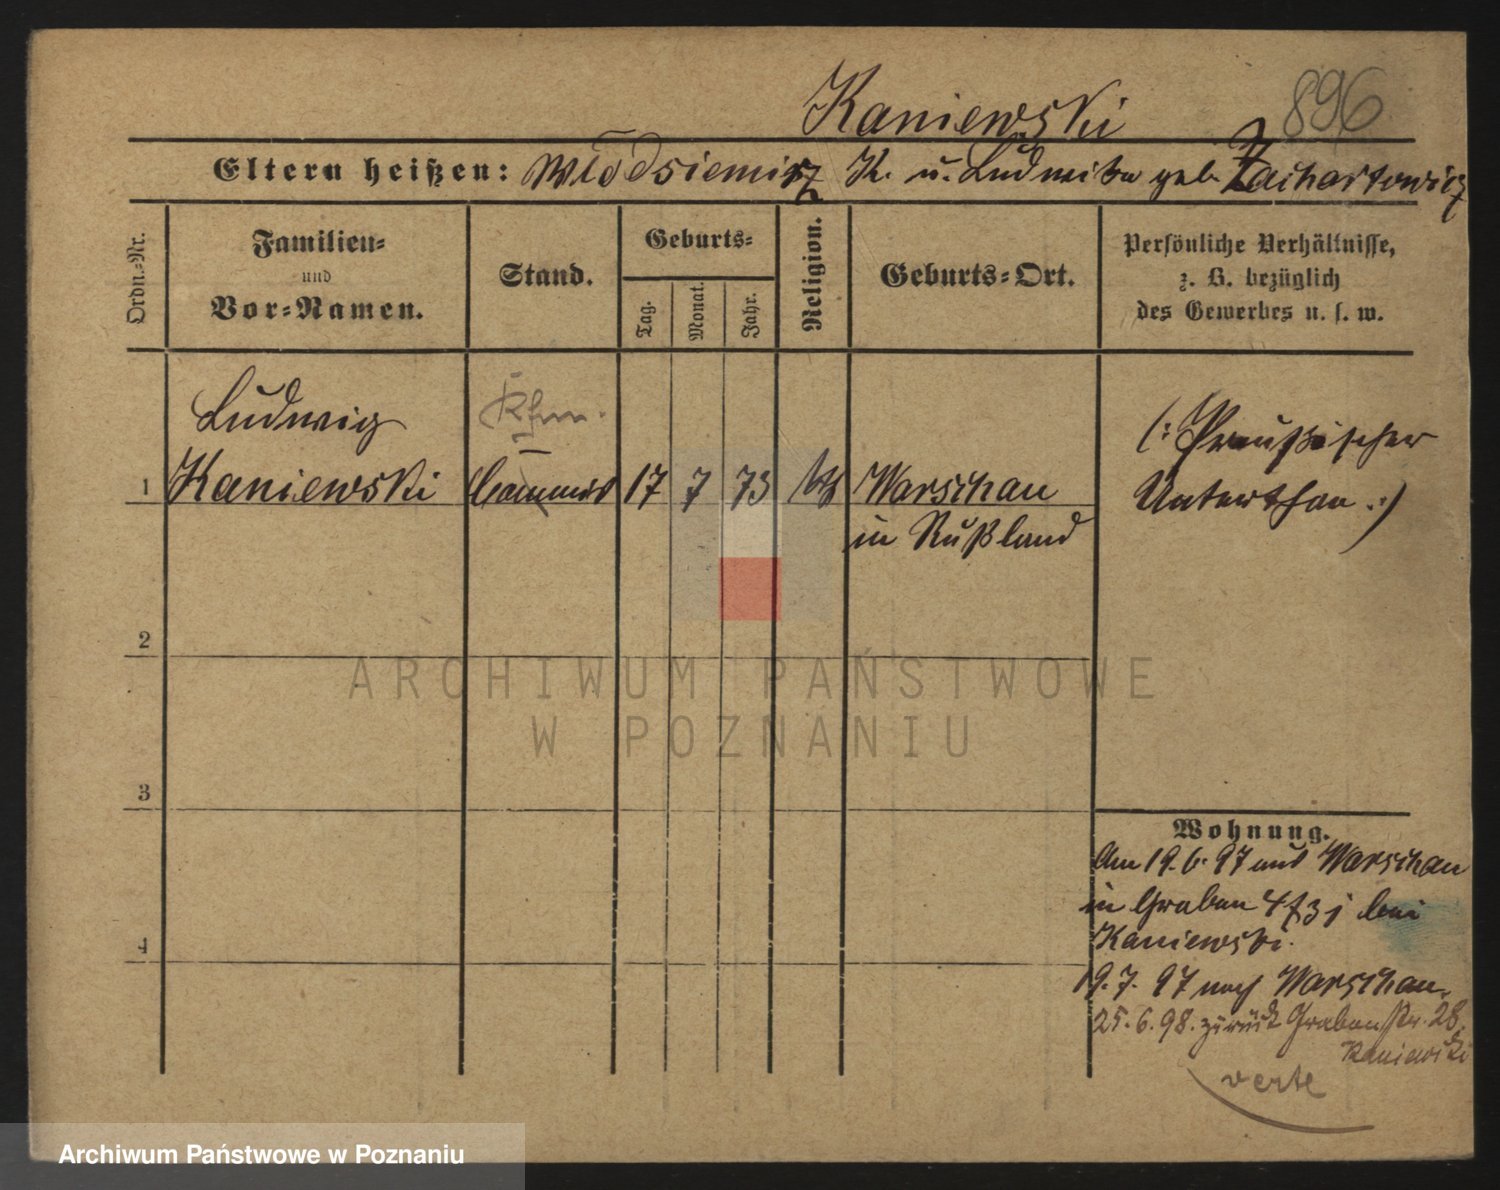 Kaniewski 896
Eltern heißen: Wlodsiemirz K. u. Ludwika geb. Zachartowicz
Ordn.-Nr.
Familien-
und
Vor-Namen.
Stand.
Geburts-
Tag.
Monat.
Jahr.
Religion.
Geburts-Ort.
Persönliche Verhältnisse,
z. B. bezüglich
des Gewerbes u. s. w.
Ludwig
Kfm.
1 Kaniewski Commis 17 7 73 Warschau
in Rußland
(: Preußischer
Unterthan :)
2
3
4
ARCHIWUM PAŃSTWOWE
W POZNANIU
Wohnung.
Am 19.6.97 aus Warschau
in Graben bei
Kaniewski.
19.7.97 nach Warschau.
25.6.98. zurück Grabenstr. 28.
Kaniewski
verte
Archiwum Państwowe w Poznaniu